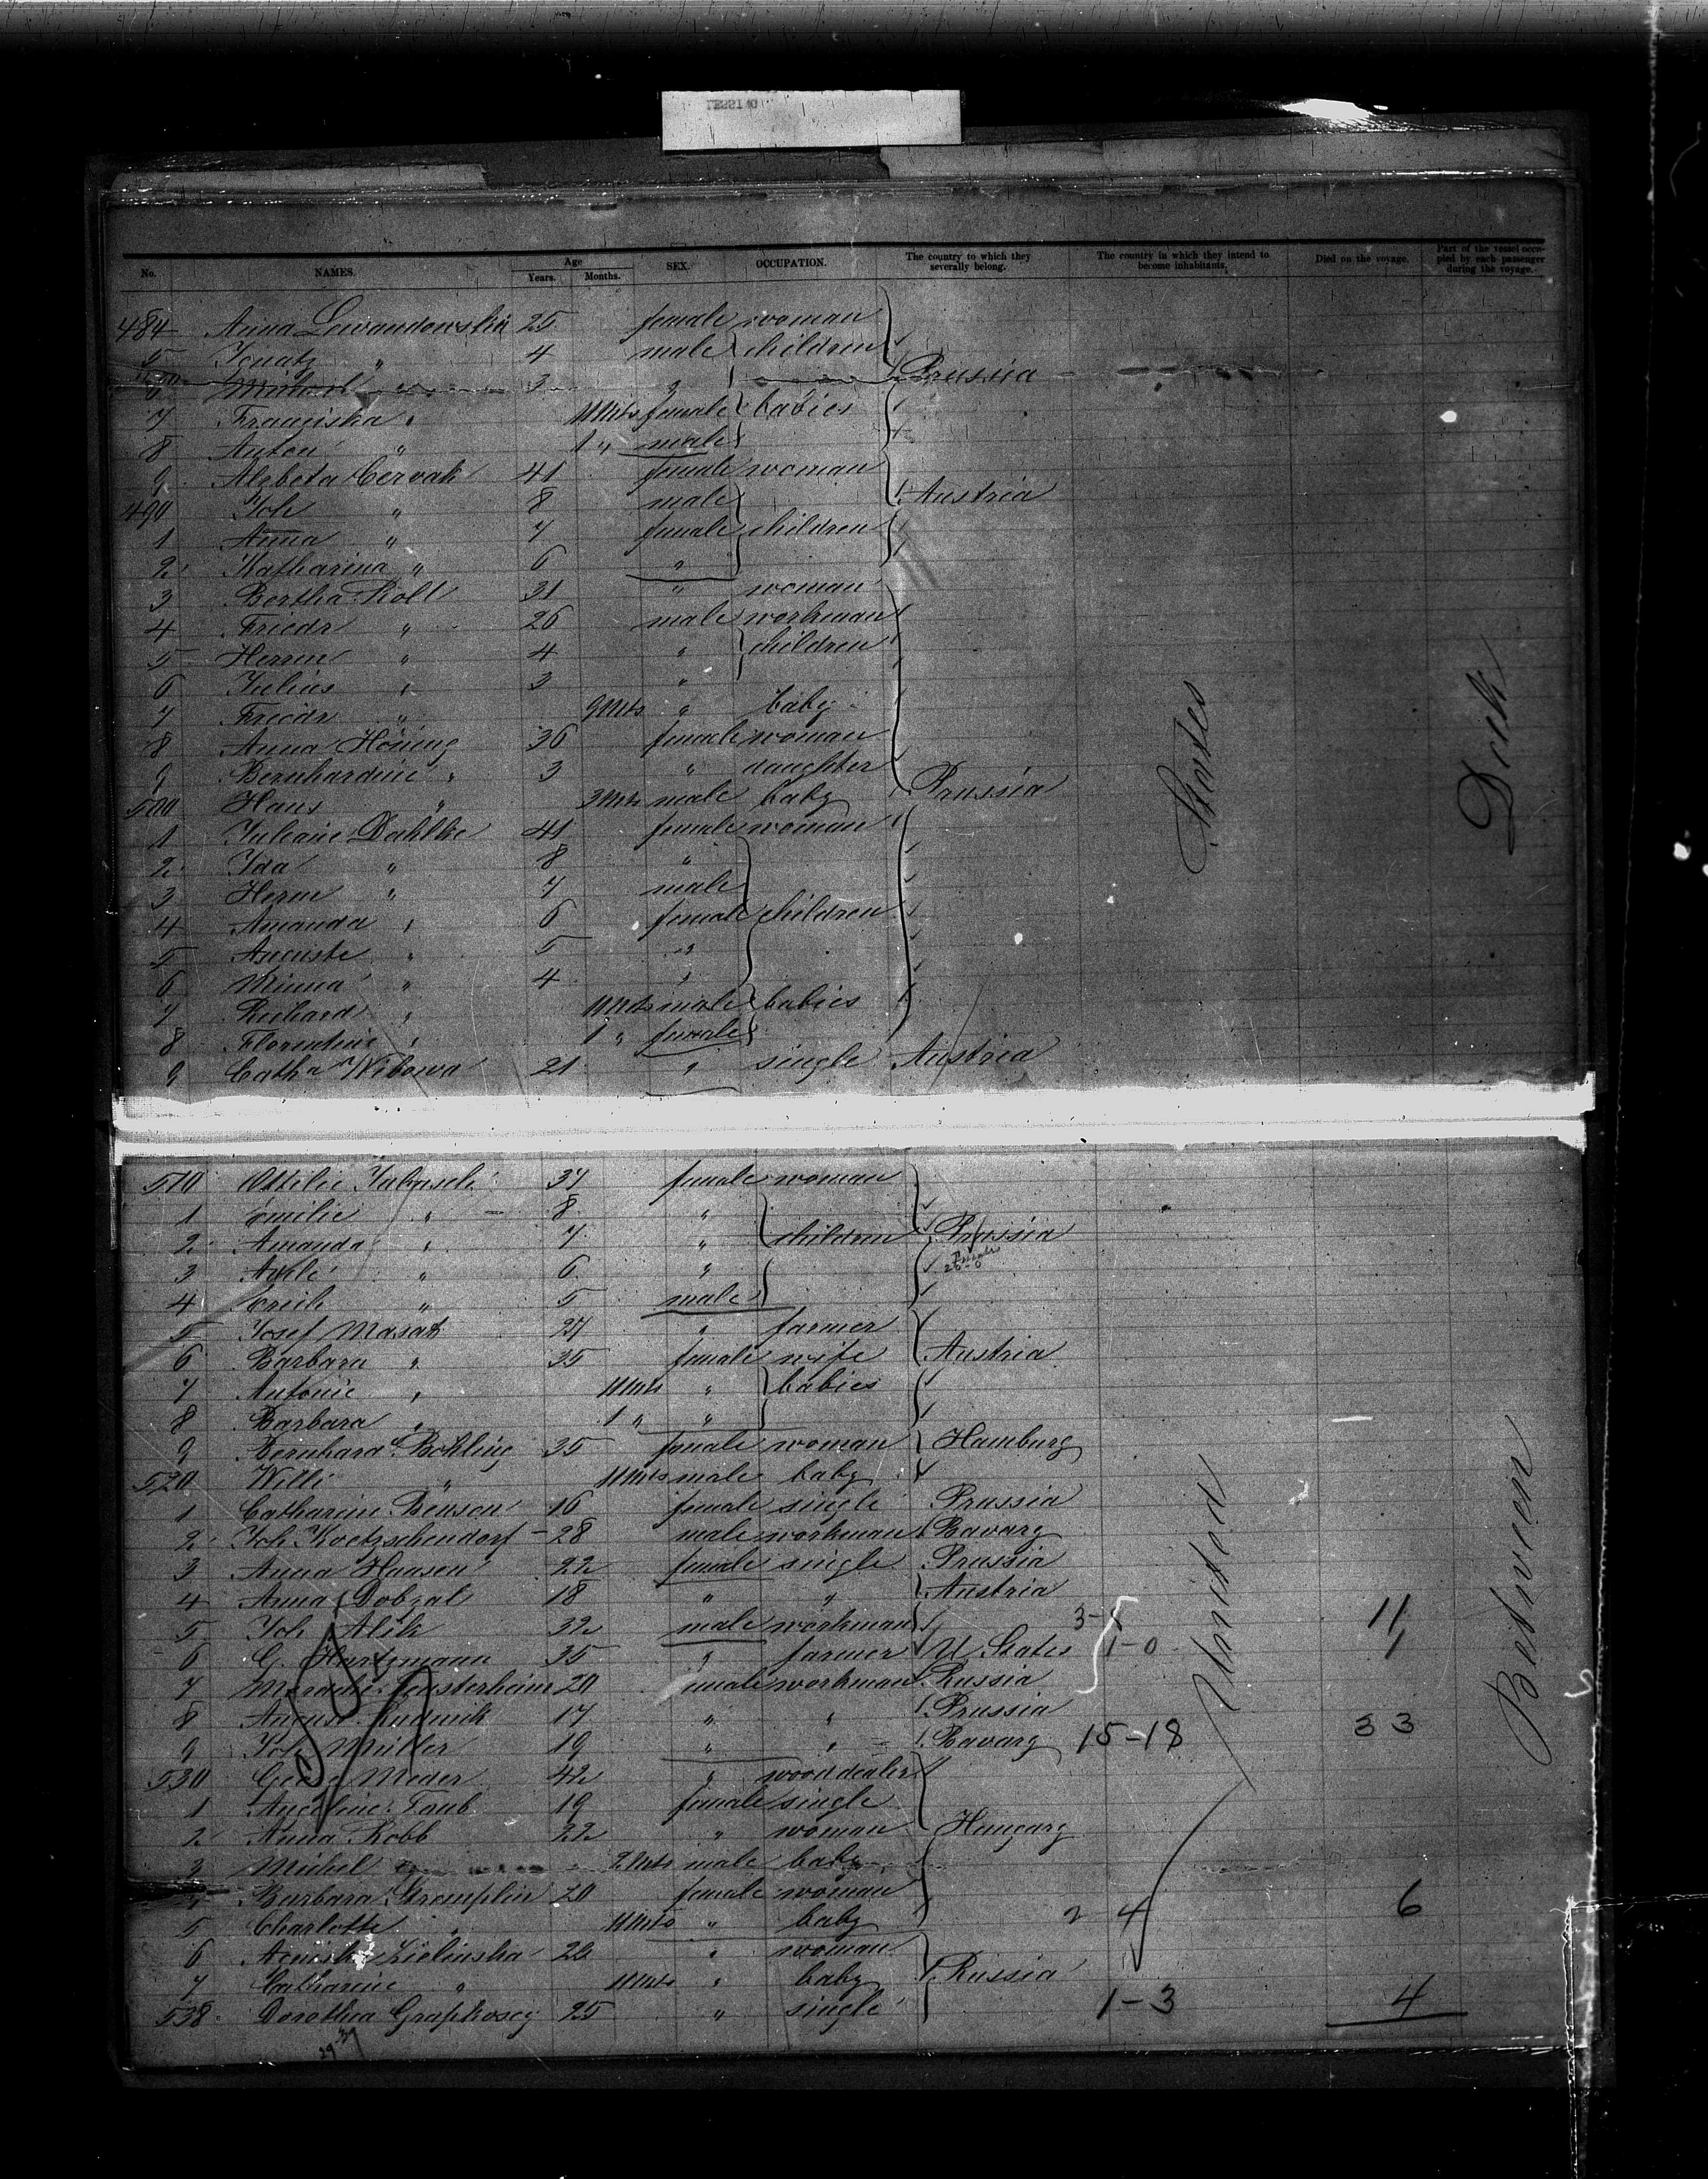 No. NAMES. Age Years. Months. SEX. OCCUPATION. The country to which they severally belong. The country in which they intend to become inhabitants. Died on the voyage. Part of the vessel occupied by each passenger during the voyage.
484 Anna Lewandowska 25 female woman
5 Ignatz " 4 male children
6 Michael " 3 " Prussia
7 Franziska " 11 Mts female babies
8 Anton " 1 " male
9 Alzbeta Cervak 41 female woman
490 Joh " 8 male Austria
1 Anna " 7 female children
2 Katharina " 6 "
3 Bertha Roll 31 " woman
4 Friedr " 26 male workman
5 Herrm " 4 " children
6 Julius " 3 "
7 Friedr " 9 Mts " baby
8 Anna Höning 36 female woman
9 Bernhardine " 3 " daughter
500 Hans " 3 Mts male baby Prussia
1 Juliane Dahlke 41 female woman
2 Ida " 8 "
3 Herm " 7 male
4 Amanda " 6 female children
5 Auguste " 5 "
6 Minna " 4 "
7 Richard " 11 Mts male babies
8 Florentine " 1 " female
9 Cath a Wibowa 21 " single Austria
States
Deck
510 Ottilie 37 female woman
1 Emilie " 8 "
2 Amanda " 7 " children Prussia
3 " 6 "
4 Erich " 5 male
5 Josef Masat 27 " farmer
6 Barbara " 35 female wife Austria
7 Antonie " 11 Mts " babies
8 Barbara " 1 " "
9 Bernhard Böhling 35 female woman Hamburg
520 Willi " 11 Mts male baby
1 Catharine Benson 16 female single Prussia
2 Joh Koetzschendorf 28 male workman Bavarg
3 Anna Hansen 22 female single Prussia
4 Anna Dobzal 18 " " Austria
5 Joh Alik 32 male workman 3- 11
6 G. Hartzmann 35 " farmer U States 1-0 1
7 20 male workman Russia
8 August Rudnik 17 " " Prussia
9 Joh Müller 19 " " Bavarg 15-18 33
530 Meder 42 " wooddealer
1 Angeline Taub 19 female single
2 Anna Robb 22 " woman Hungarg
3 Michel 2 Mts male baby
4 Barbara Gremplin 20 female woman
5 Charlotte " 11 Mts " baby 2 4 6
6 Zielinska 22 " woman
7 Catharine " 11 Mts " baby Russia
538 Dorothea Graphoscy 25 " single 1-3 4
United
Between
29